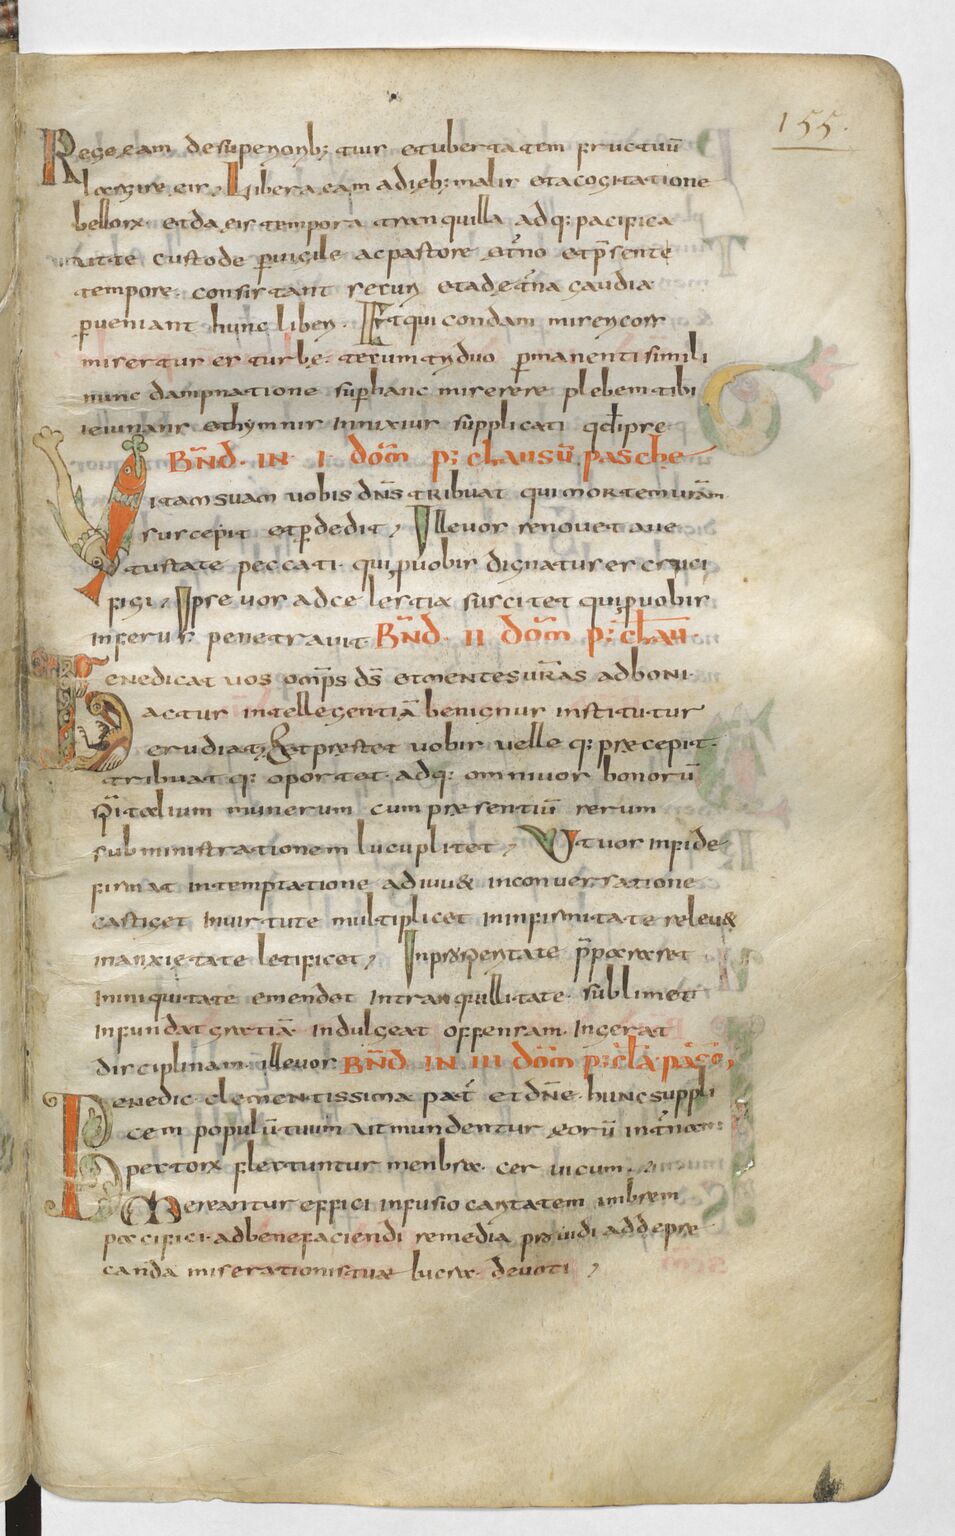 155.
Rege eam de superiorib; tuis et ubertatem fructuū
largire eis, Libera eam a dieb; malis et a cogitatione
bellorū et da eis tempora tranquilla adq; pacifica
ut te custode p̄uigile ac pastore et̄no et p̄sente
tempore consistant securi et ad et̄na gaudia
p̄veniant hunc liberi. Et qui condam misericors
misertus es turbe
nunc dampnatione sup̄ hanc miserere plebem tibi
ieiuniis et hymnis innixius supplicati q̄d ipre
BN̄D · IN · I · dōm p; clausū pasche
Vitam suam vobis dn̄s tribuat qui mortem ur̄am
suscepit et p̄dedit, Ille uos renouet a ue
tustate peccati qui p̄ uobis dignatus es cruci
figi, Ipse uos ad celestia suscitet qui p̄ uobis
inferus penetravit BN̄D · II dōm p; clāu
Benedicat uos om̄ps d̄s et mentes ur̄as ad boni
actus intellegentiā benignus institutus
erudiat, Et prestet uobis uelle q; precepit
tribuat q; oportet adq; omni uos bonorū
sp̄italium munerum cum presentiū rerum
subministrationem lucuplitet, Ut uos in fide
firmat in temptatione adiuu& in conuersatione
castiget in uirtute multiplicet in infirmitate releu&
in anxietate letificet, In prosperitate p̄paret
in iniquitate emendet in tranquillitate sublimet
infundat gratiā indulgeat offensam ingerat
disciplinam ille uos BN̄D · IN III dōm p; clā pasc,
Benedic clementissima pat̄ et dn̄e hunc suppli
cem populū tuum ut mundentur eorū
pectora flectuntur menbra ceruicum
Mereantur effici infusio caritatem imbrem
pacifici ad benefaciendi remedia providi ad depre
canda miserationis tuae devoti,